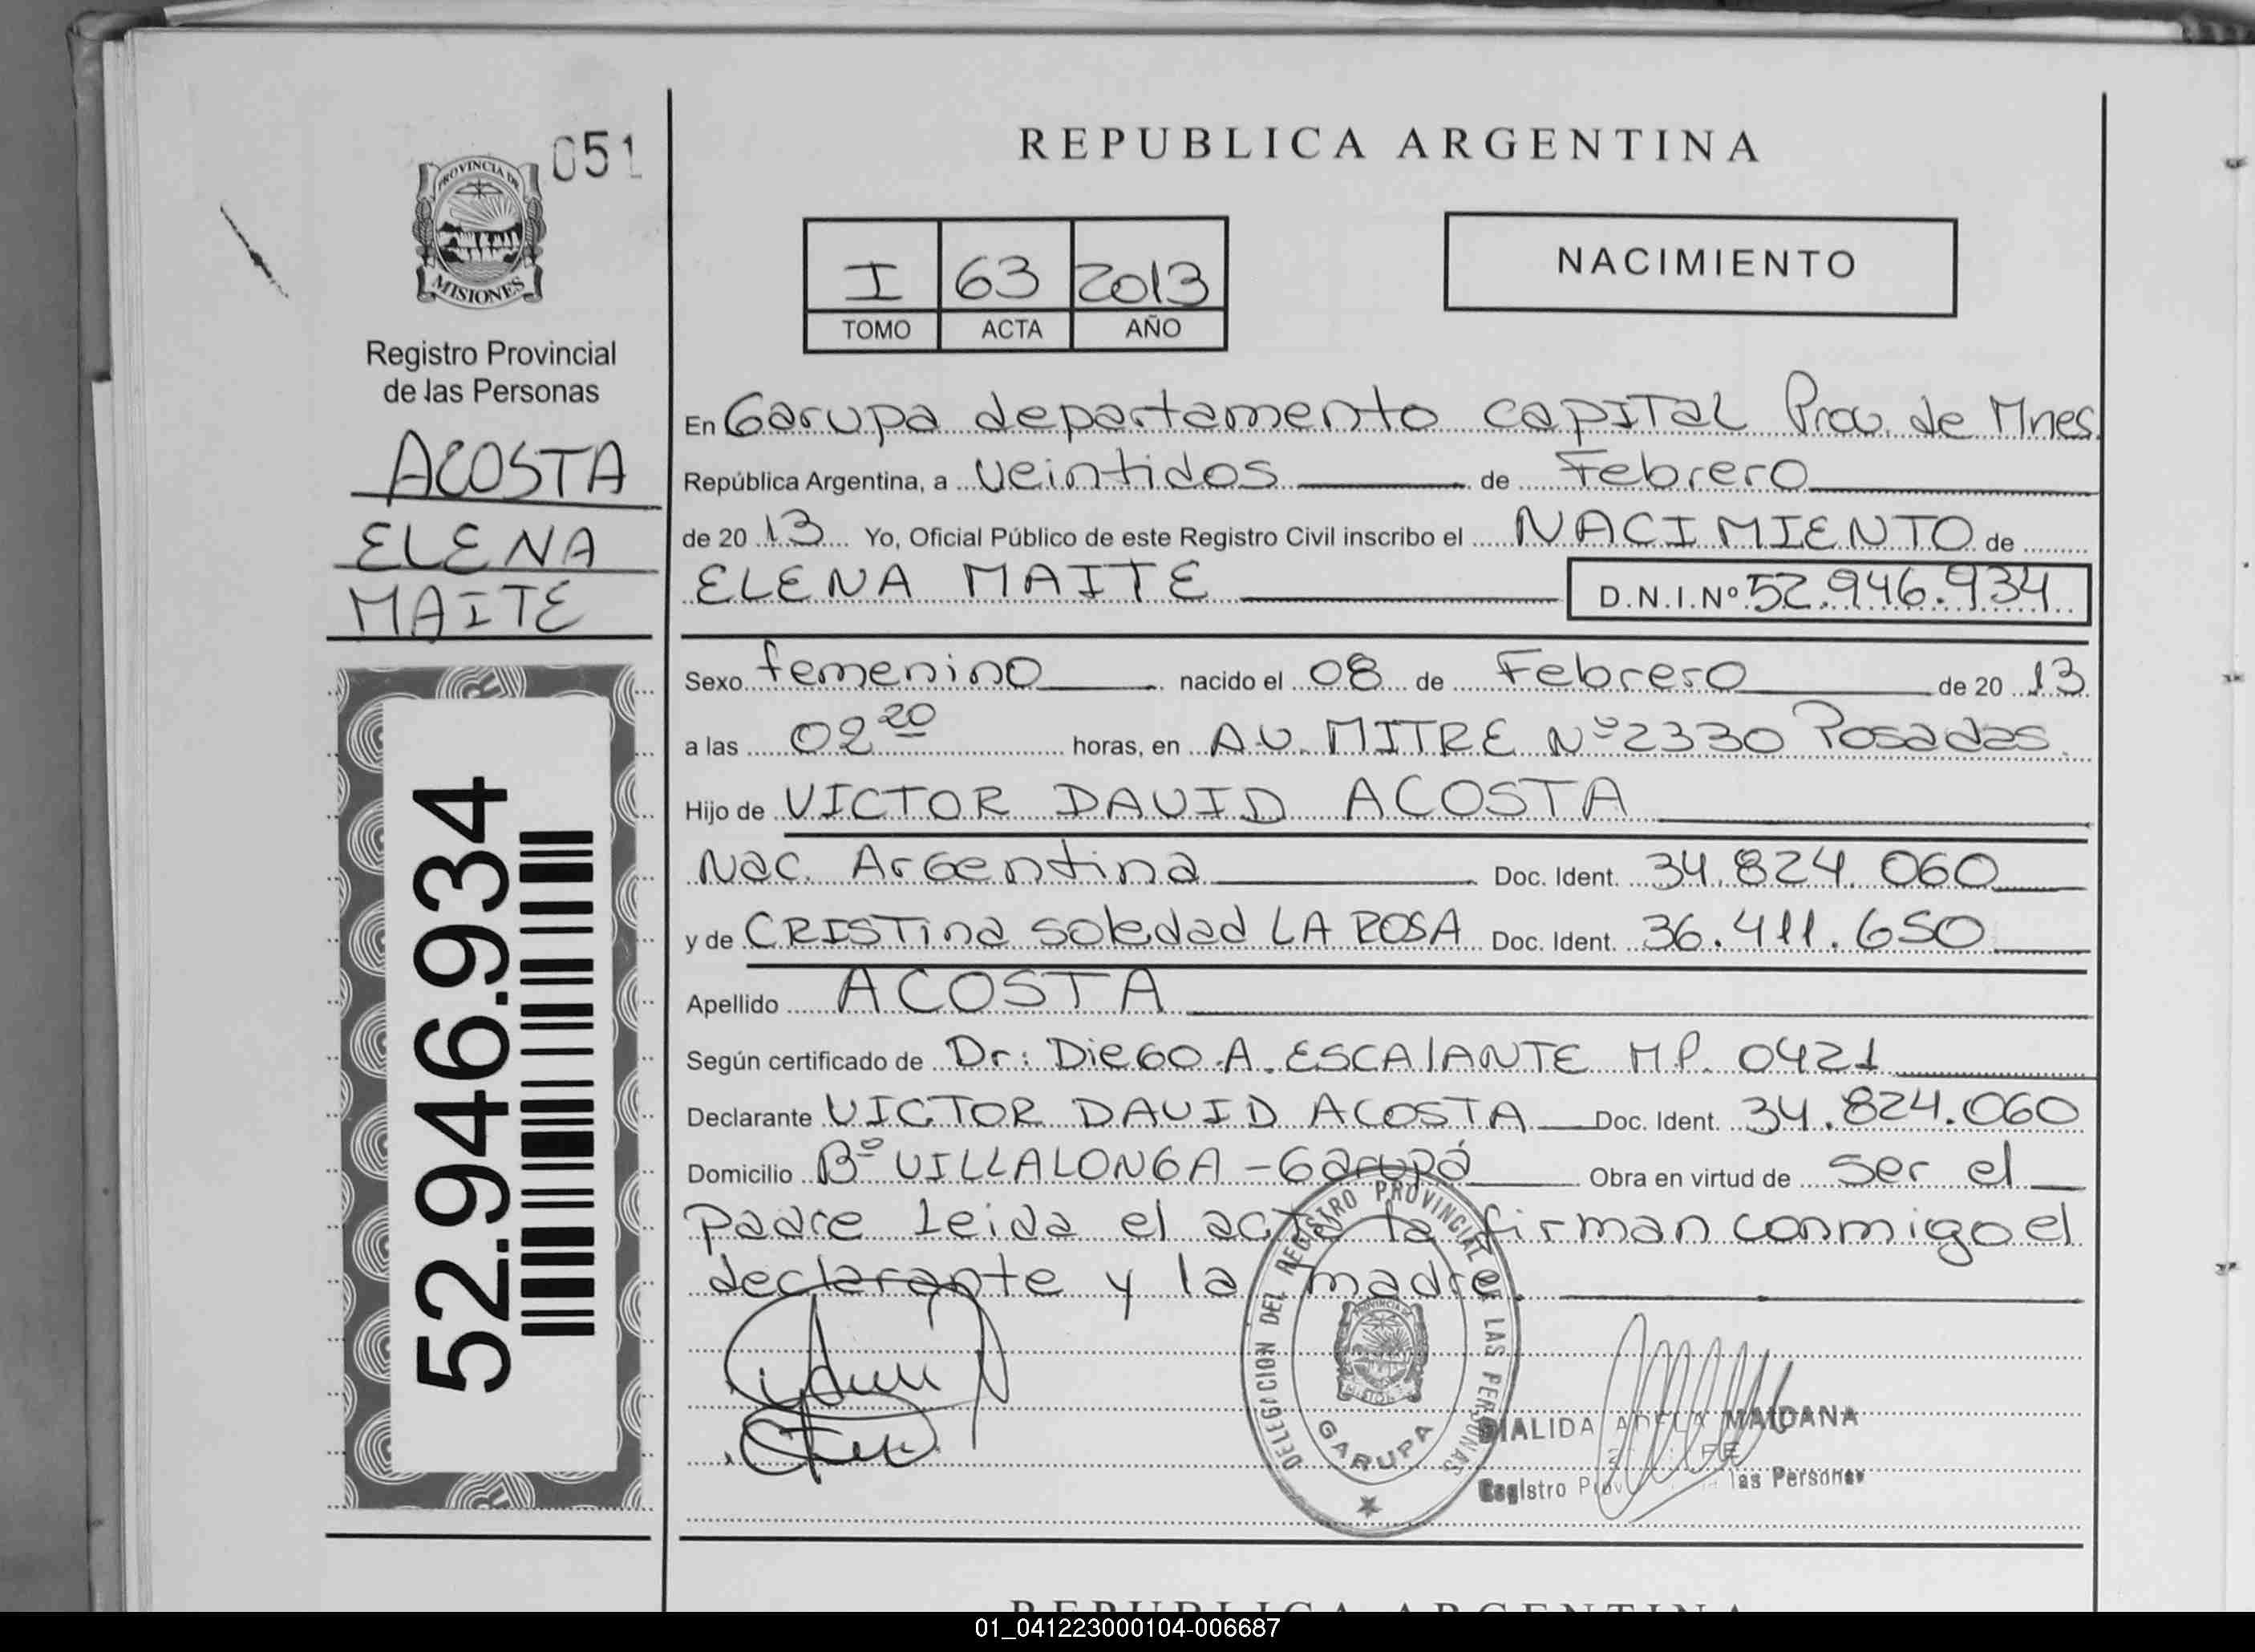 051
PROVINCIA DE
MISIONES
Registro Provincial
de las Personas
ACOSTA
ELENA
MAITE
52.946.934
REPUBLICA ARGENTINA
I 63 2013
TOMO ACTA AÑO
NACIMIENTO
En Garupa departamento capital Prov. de Mnes
República Argentina, a veintidos de Febrero
de 2013 Yo, Oficial Público de este Registro Civil inscribo el NACIMIENTO de
ELENA MAITE D.N.I.Nº 52.946.934
Sexo femenino nacido el 08 de Febrero de 2013
a las 02 20 horas, en AV. MITRE Nº 2330 Posadas.
Hijo de VICTOR DAVID ACOSTA
Nac. Argentina Doc. Ident. 34.824.060
y de CRISTina soledad LA ROSA Doc. Ident. 36.411.650
Apellido ACOSTA
Según certificado de Dr: Diego A. ESCAlANTE M.P. 0421
Declarante VICTOR DAVID ACOSTA Doc. Ident. 34.824.060
Domicilio Bº VILLALONGA - Garupá Obra en virtud de ser el
Padre Leida el acta la firman conmigo el
declarante y la madre.
DELEGACION DEL REGISTRO PROVINCIAL DE LAS PERSONAS
PROVINCIA DE
MISIONES
GARUPA
MAIDANA
Registro las Personas
REPUBLICA ARGENTINA
01_041223000104-006687